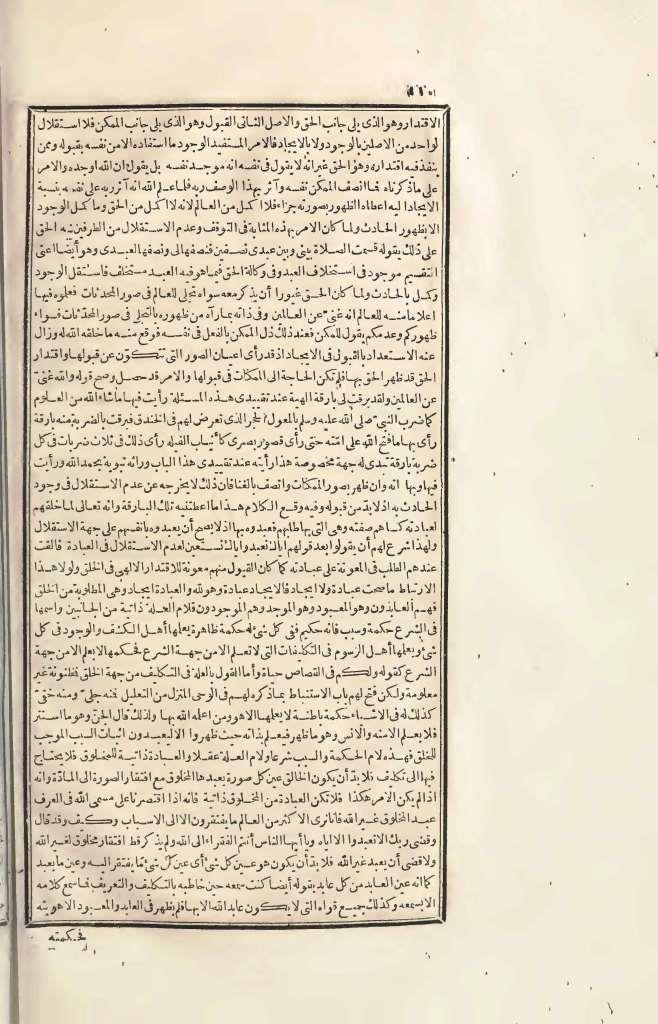 الاقتدار وهو الذى يلى جانب الحق والاصل الثانى القبول وهو الذى يلى جانب الممكن فلا استقلال
لواحد من الاصلين بالوجود ولا بالايجاد فالامر المستفيد الوجود ما استفاده الا من نفسه بقبوله وممن
ينفذ فيه اقتداره وهو الحق غير انه لا يقول فى نفسه انه موجد نفسه بل يقول ان الله اوجده والامر
على ما ذكرناه فما انصف الممكن نفسه وآثر بهذا الوصف ربه فلما علم الله انه آثر ربه على نفسه بنسبة
الايجاد اليه اعطاه الظهور بصورته جزاء فلا اكمل من العالم لانه لا اكمل من الحق وما كمل الوجود
الا بظهور الحادث ولما كان الامر بهذه المثابة فى التوقف وعدم الاستقلال من الطرفين نبه الحق
على ذلك بقوله قسمت الصلاة بينى وبين عبدى نصفين فنصفها لى ونصفها لعبدى وهو أيضا اعنى
التقسيم موجود فى استخلاف العبد وفى وكالة الحق فيما هو فيه العبد مستخلف فاستقل الوجود
وكمل بالحادث ولما كان الحق غيورا أن يذكر معه سواه تجلى للعالم فى صور المحدثات فعلموه فيها
اعلاما منه للعالم انه غنى عن العالمين وفى ذاته بما رآه من ظهوره بالتجلى فى صور المحدثات فسواء
ظهوركم وعدمكم يقول للممكن فعند ذلك ذل الممكن بالفعل فى نفسه فوقع منه ما خلقه الله له وزال
عنه الاستعداد بالقبول فى الايجاد اذ قد رأى اعيان الصور التى تتكون عن قبولها واقتدار
الحق قد ظهر الحق بها فلم تكن الحاجة الى الممكنات فى قبولها والامر قد حصل وصح قوله والله غنى
عن العالمين ولقد برقت لى بارقة الهية عند تقييدى هذه المسئلة رأيت فيها ما شاء الله من العلوم
كما ضرب النبى صلى الله عليه وسلم بالمعول الحجر الذى تعرض لهم فى الخندق فبرقت بالضربة منه بارقة
رأى بها ما فتح الله على امته حتى رأى قصور بصرى كأنياب الفيلة رأى ذلك فى ثلاث ضربات فى كل
ضربة بارقة تبدى له جهة مخصوصة هذا رأيته عند تقييدى هذا الباب وراثة نبوية بحمد الله ورأيت
فيها وبها انه وان ظهر بصور الممكنات واتصف بالغنا فان ذلك لا يخرجه عن عدم الاستقلال فى وجود
الحادث به اذ لا بد من قبوله وفيه وقع الكلام هذا ما اعطتنيه تلك البارقة وانه تعالى لما خلقهم
لعبادته كساهم صفته وهى التى بها طلبهم فعبدوه بها اذ لا يصح أن يعبدوه بانفسهم على جهة الاستقلال
ولهذا شرع لهم أن يقولوا بعد قولهم اياك نعبد واياك نستعين لعدم الاستقلال فى العبادة فالقت
عندهم الطلب فى المعونة على عبادته كما كان القبول منهم معونة للاقتدار الالهى فى الخلق ولولا هذا
الارتباط ما صحت عبادة ولا ايجاد فالايجاد عبادة وهو لله والعبادة ايجاد وهى المطلوبة من الخلق
فهم العابدون وهو المعبود وهو الموجد وهم الموجودون فلام العلة ذاتية من الجانبين واسمها
فى الشرع حكمة وسبب فانه حكيم ففى كل شئ له حكمة ظاهرة يعلمها أهل الكشف والوجود فى كل
شئ ويعلمها أهل الرسوم فى التكليفات التى لا تعلم الا من جهة الشرع فحكمها لا يعلم الا من جهة
الشرع كقوله ولكم فى القصاص حياة وأما القول بالعلة فى التكليف من جهة الخلق فظنونة غير
معلومة ولكن فتح لهم باب الاستنباط بما ذكره لهم فى الوحى المنزل من التعليل فنه جلى ومنه خفى
كذلك له فى الاشياء حكمة باطنة لا يعلمها الا هو ومن اعلمه الله بها ولذلك قال الجن وهو ما استتر
فلا يعلم الا منه والانس وهو ما ظهر فيعلم بذاته حيث ظهروا الا ليعبدون اثبات السبب الموجب
للخلق فهذه لام الحكمة والسبب شرعا ولام العلة عقلا والعبادة ذاتية للمخلوق فلا يحتاج
فيها الى تكليف فلا بد أن يكون الخالق عين كل صورة يعبدها المخلوق مع افتقار الصورة الى المادة وانه
اذ لم يكن الامر هكذا فلا تكن العبادة من المخلوق ذاتية فانه اذا اقتصرنا على مسمى الله فى العرف
عبد المخلوق غير الله فانا نرى الاكثر من العالم ما يفتقرون الا الى الاسباب وكيف وقد قال
وقضى ربك الا تعبدوا الا اياه ويا أيها الناس أنتم الفقراء الى الله ولم يذكر قط افتقار مخلوق لغير الله
ولا قضى أن يعبد غير الله فلا بد أن يكون هو عين كل شئ أى عين كل شئ مما يفتقر اليه وعين ما يعبد
كما انه عين العابد من كل عابد بقوله أيضا كنت سمعه حين خاطبه بالتكليف والتعريف فما سمع كلامه
الا بسمعه وكذلك جميع قواه التى لا يكون عابد الله الا بها فلم يظهر فى العابد والمعبود الا هويته